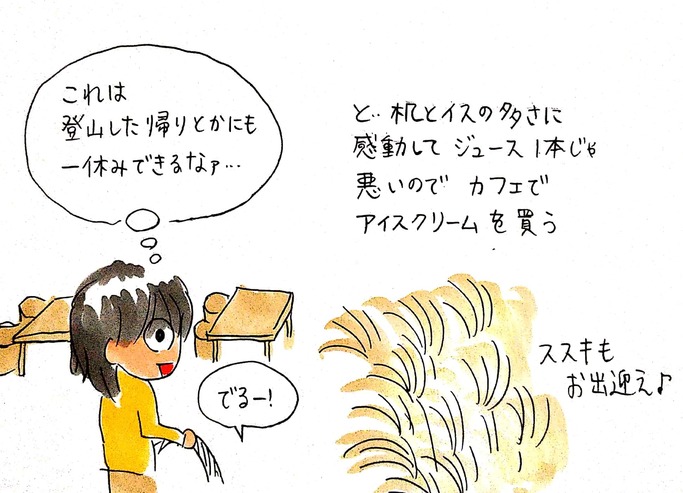 これは
登山した帰りとかにも
一休みできるなァ…
と‥机とイスの多さに
感動して ジュース1本じゃ
悪いので カフェで
アイスクリームを買う
でるー!
ススキも
お出迎え♪